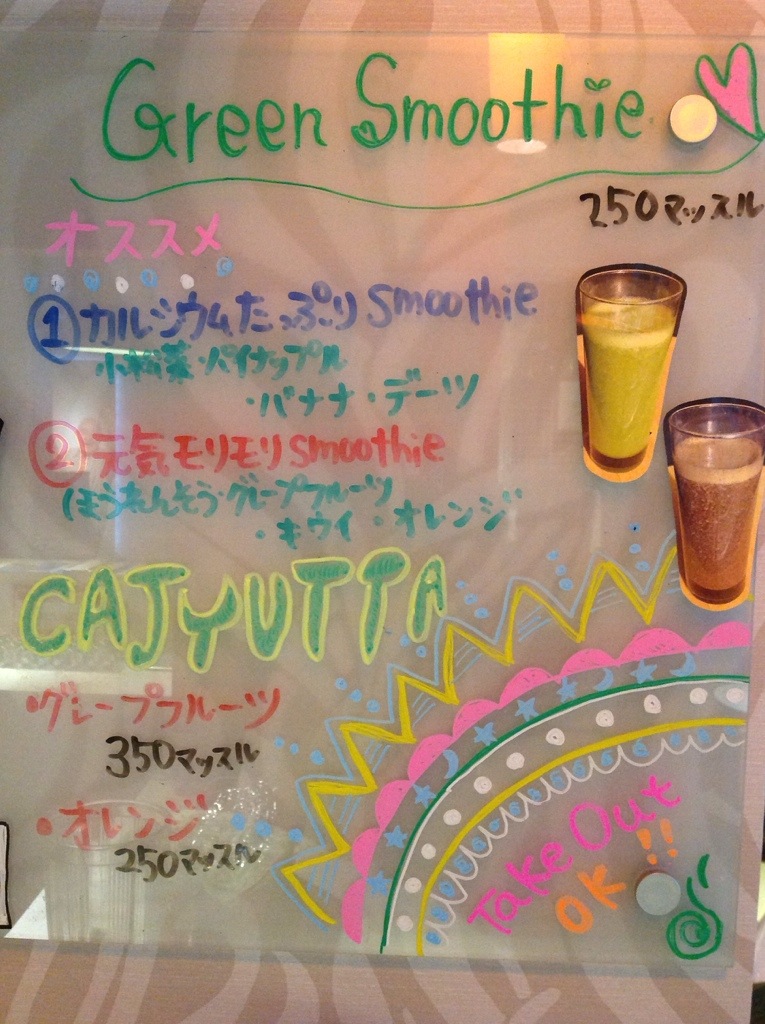 Green Smoothie
250マッスル
オススメ
①カルシウムたっぷりsmoothie
小松菜・パイナップル
・バナナ・デーツ
②元気モリモリsmoothie
ほうれんそう・グレープフルーツ
・キウイ・オレンジ
CAJYUTTA
・グレープフルーツ
350マッスル
・オレンジ
250マッスル
Take Out
OK!!